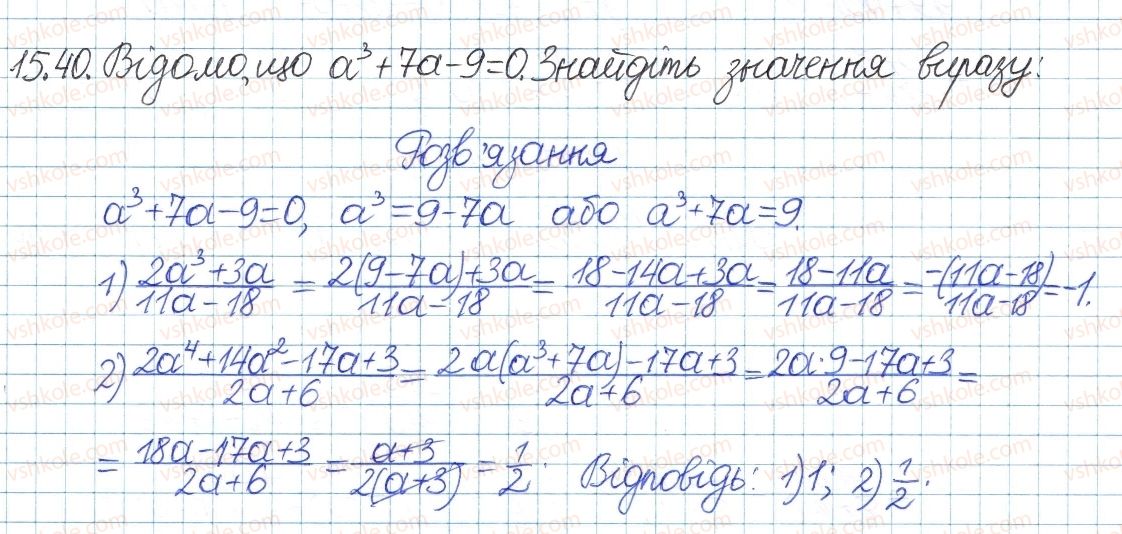 15.40. Відомо, що a³+7a-9=0. Знайдіть значення виразу:
Розв'язання
a³+7a-9=0, a³=9-7a або a³+7a=9.
1) (2a³+3a)/(11a-18) = (2(9-7a)+3a)/(11a-18) = (18-14a+3a)/(11a-18) = (18-11a)/(11a-18) = (-(11a-18))/(11a-18) = -1.
2) (2a⁴+14a²-17a+3)/(2a+6) = (2a(a³+7a)-17a+3)/(2a+6) = (2a·9-17a+3)/(2a+6) =
= (18a-17a+3)/(2a+6) = (a+3)/(2(a+3)) = 1/2. Відповідь: 1) 1; 2) 1/2.